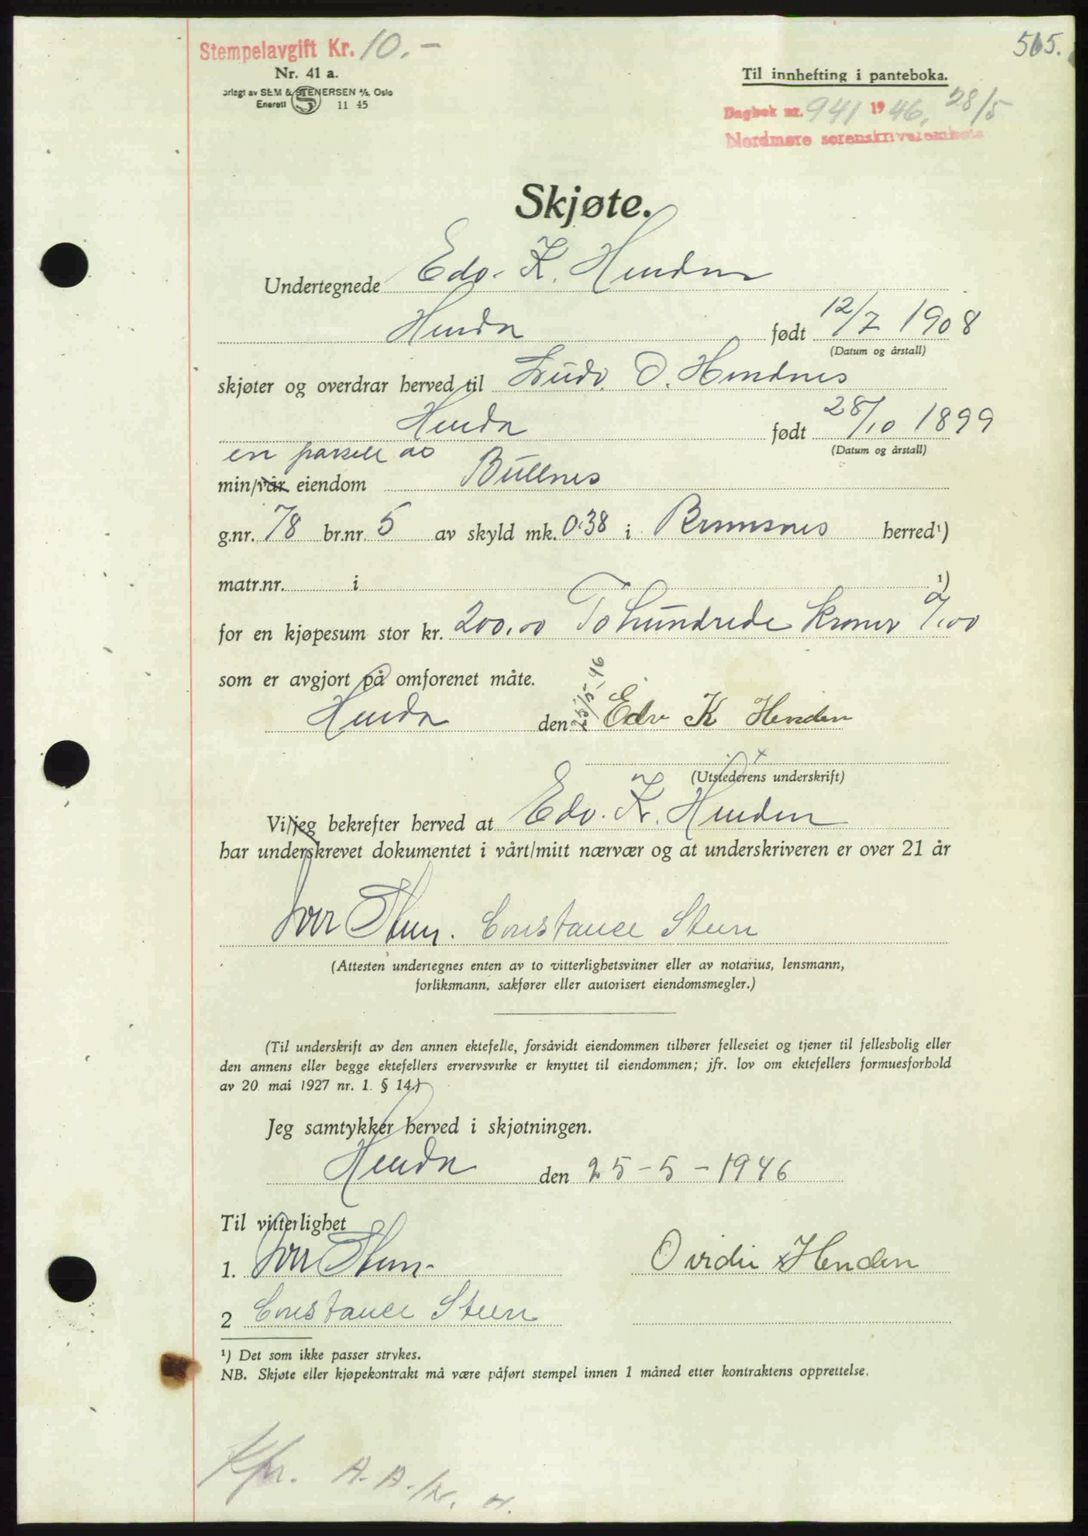 Stempelavgift Kr. 10.- 565.
Nr. 41 a.
orlagt av SEM & STENERSEN A/S, Oslo
Enerett S 11 45
Til innhefting i panteboka.
Dagbok nr. 941 1946, 28/5
Nordmøre sorenskriverembete
Skjøte.
Undertegnede Edv. K. Henden
Henda født 12/7 1908
(Datum og årstall)
skjøter og overdrar herved til Ludv. O. Hendnes
Henda født 28/10 1899
(Datum og årstall)
en parsell av
min/vår eiendom Bullnes
g.nr. 78 br.nr. 5 av skyld mk. 0.38 i Bremsnes herred¹)
matr.nr. i ¹)
for en kjøpesum stor kr. 200,00 To hundrede kroner 0/00
som er avgjort på omforenet måte.
Henda den 25/5-46 Edv K Henden
(Utstederens underskrift)
Vi/jeg bekrefter herved at Edv. K. Henden
har underskrevet dokumentet i vårt/mitt nærvær og at underskriveren er over 21 år
Iver Steen. Constance Steen
(Attesten undertegnes enten av to vitterlighetsvitner eller av notarius, lensmann,
forliksmann, sakfører eller autorisert eiendomsmegler.)
(Til underskrift av den annen ektefelle, forsåvidt eiendommen tilhører felleseiet og tjener til fellesbolig eller
den annens eller begge ektefellers ervervsvirke er knyttet til eiendommen; jfr. lov om ektefellers formuesforhold
av 20 mai 1927 nr. 1. § 14.)
Jeg samtykker herved i skjøtningen.
Henda den 25-5-1946
Til vitterlighet
1. Iver Steen. Ovidie Henden
2 Constance Steen
¹) Det som ikke passer strykes.
NB. Skjøte eller kjøpekontrakt må være påført stempel innen 1 måned etter kontraktens opprettelse.